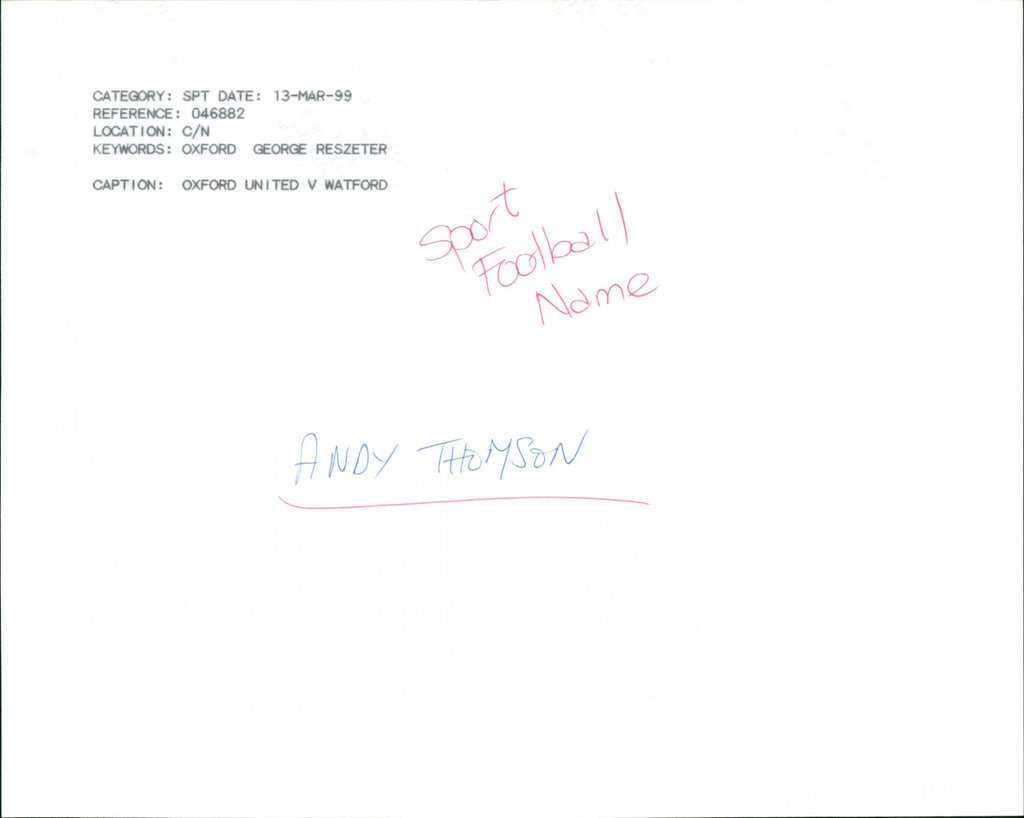 CATEGORY: SPT DATE: 13-MAR-99
REFERENCE: 046882
LOCATION: C/N
KEYWORDS: OXFORD GEORGE RESZETER
CAPTION: OXFORD UNITED V WATFORD
Sport
Football
Name
ANDY THOMSON